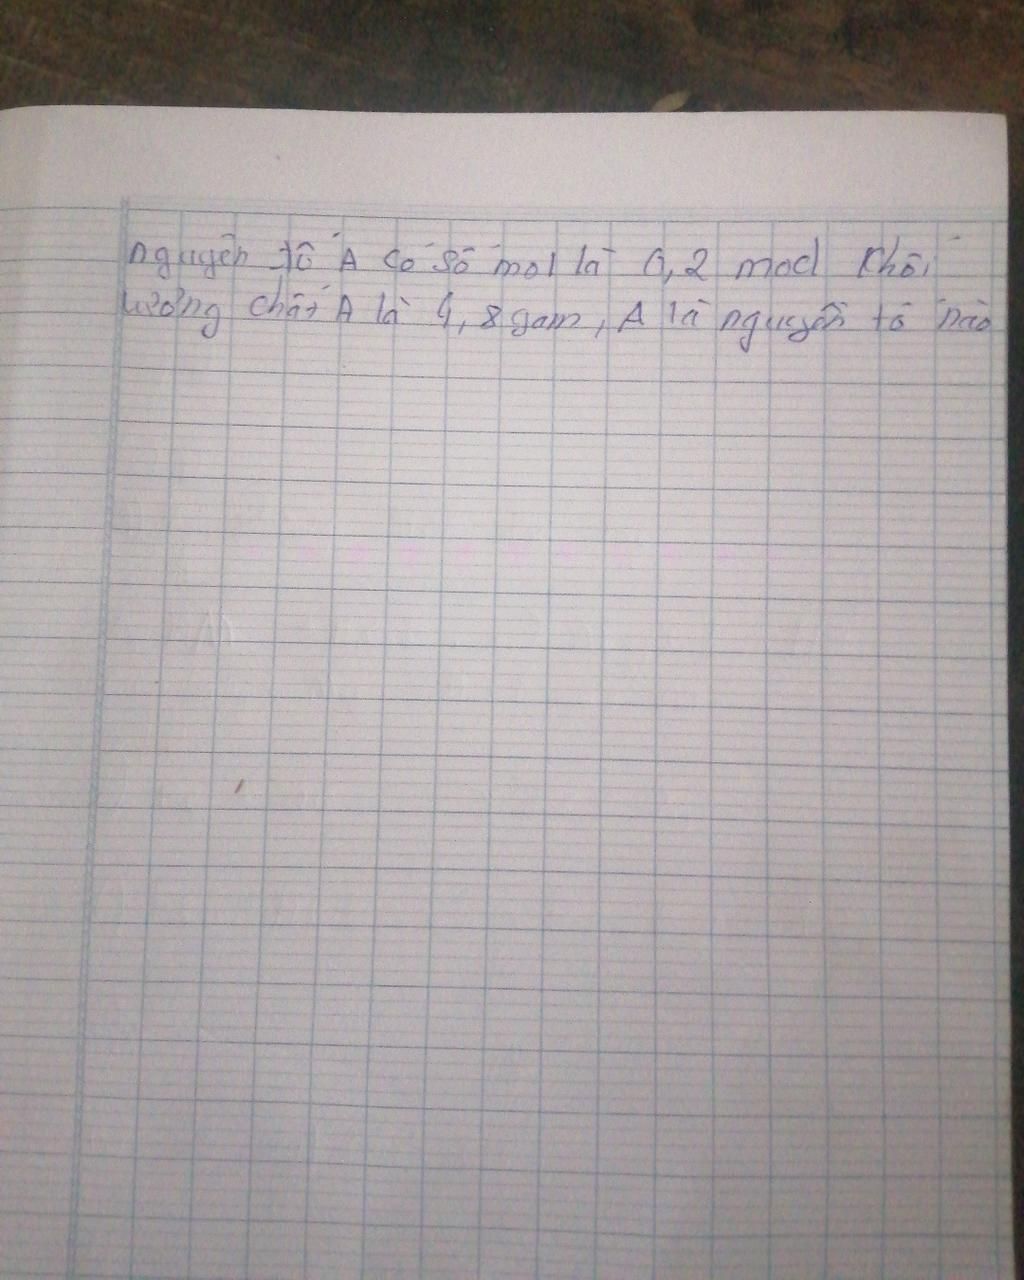 nguyên tố A có số mol là 0,2 mol khối
lượng chất A là 4,8gam, A là nguyên tố nào